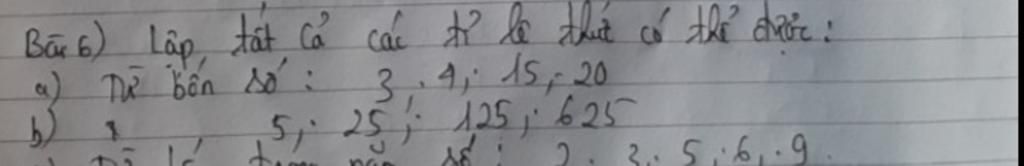 Bài 6) Lập tất cả các tỉ lệ thức có thể được:
a) Từ bốn số: 3, 4; 15; 20
b) 5; 25; 125; 625
số: 2; 3; 5; 6; 9.